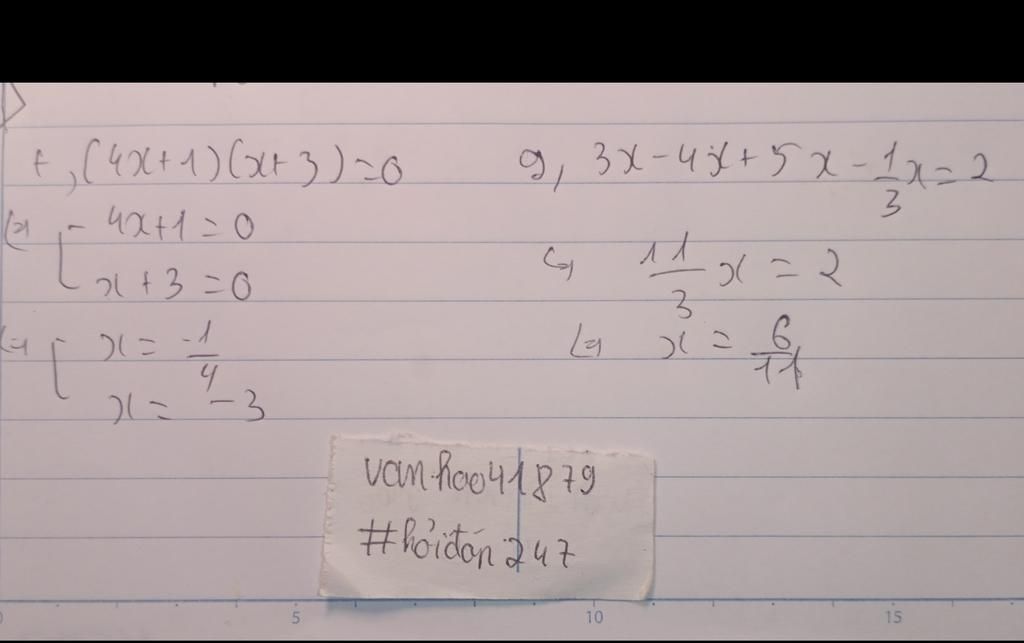 f, (4x+1)(x+3)=0
⇔ [ 4x+1=0
x+3=0
⇔ [ x= -1/4
x= -3
g, 3x-4x+5x-1/3x=2
⇔ 11/3 x = 2
⇔ x = 6/11
van.hao41879
#hỏiđáp247
0 5 10 15